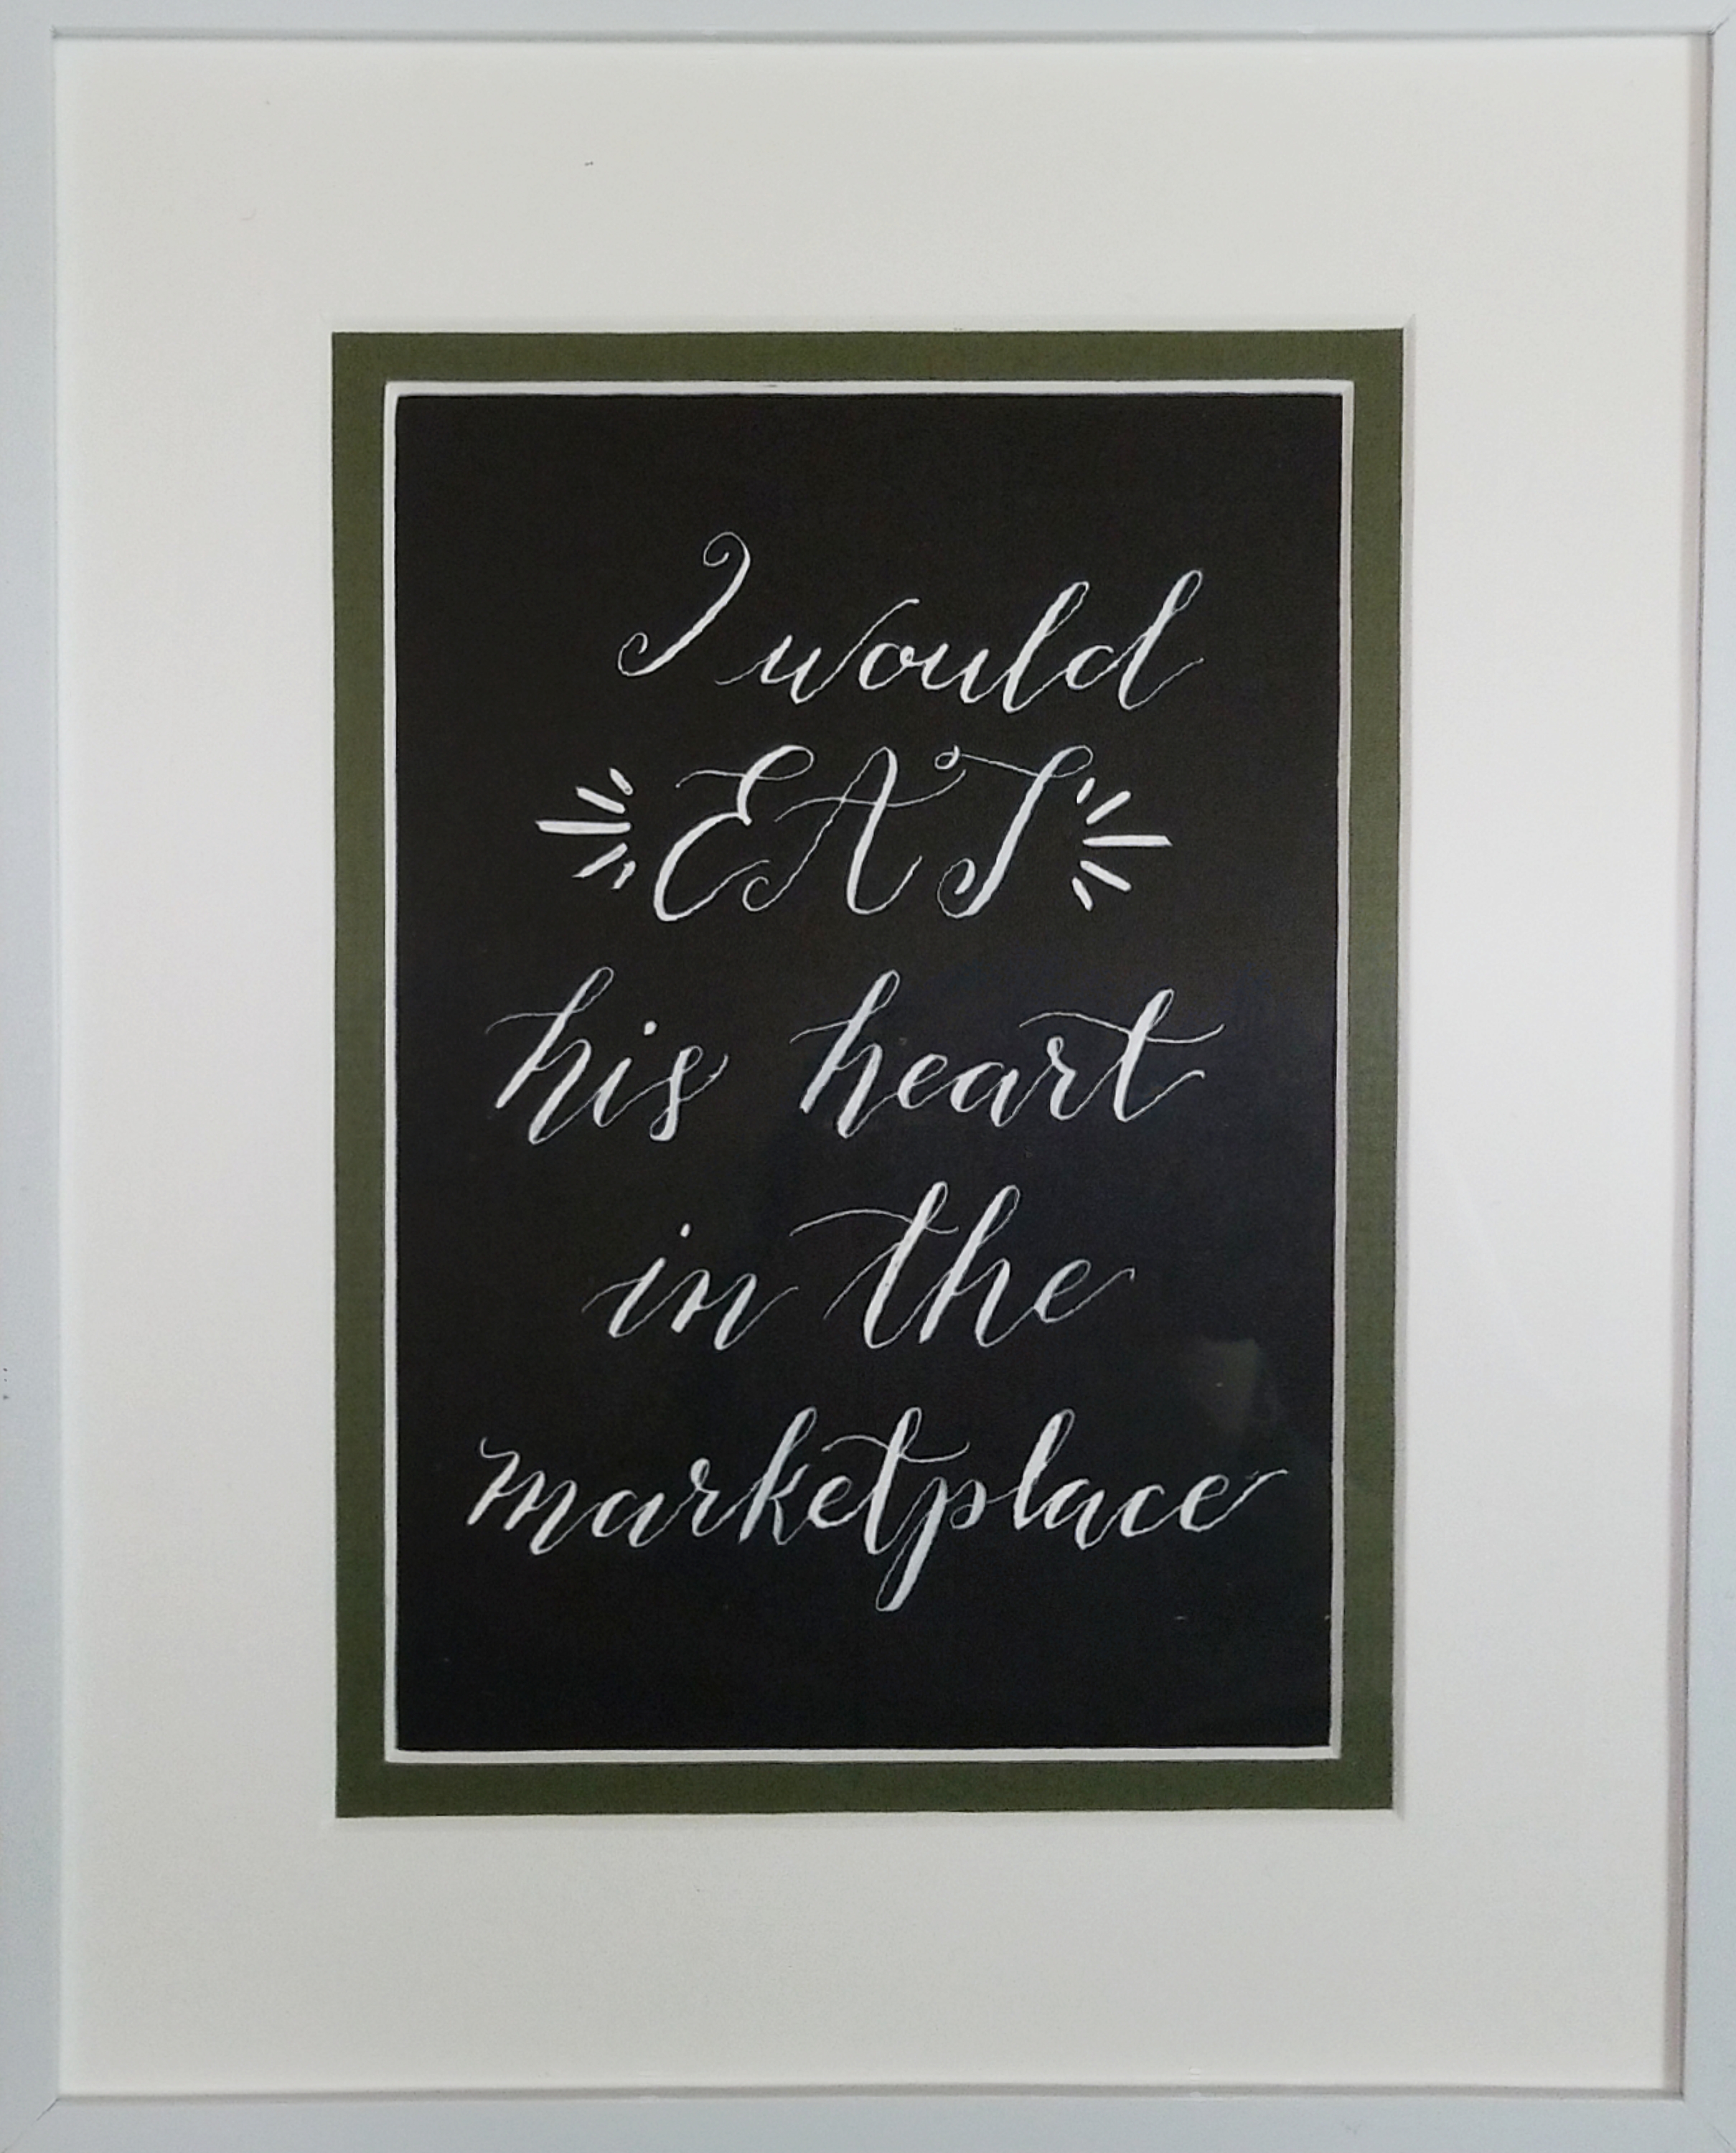 I would
EAT
his heart
in the
marketplace